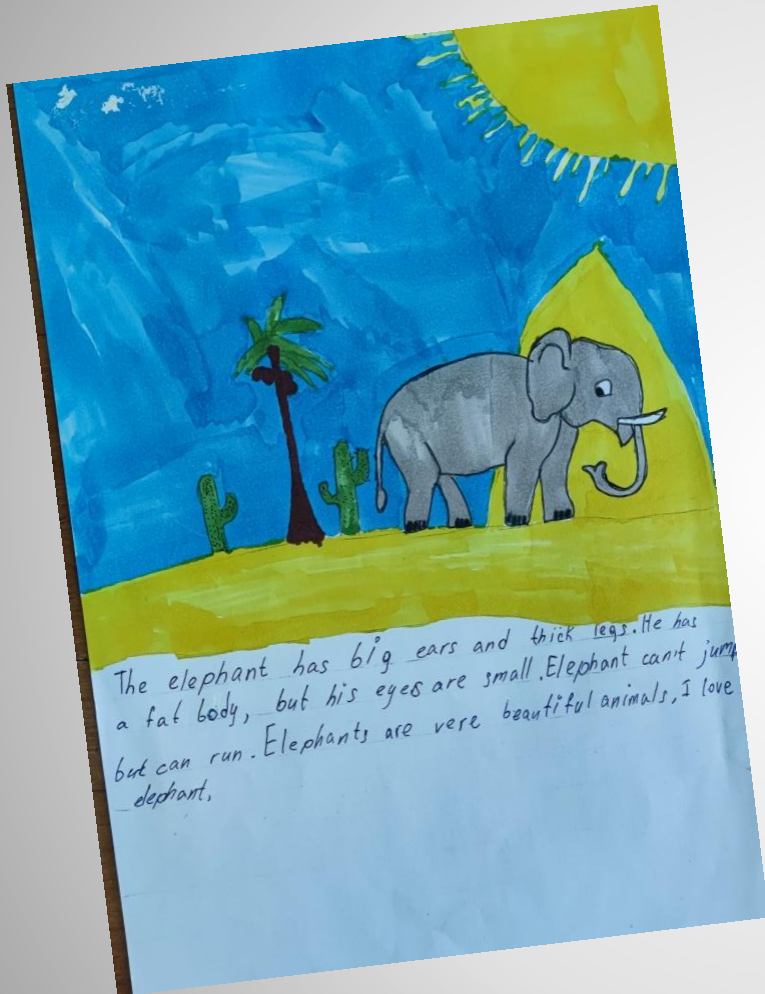 The elephant has big ears and thick legs. He has
a fat body, but his eyes are small. Elephant can't jump
but can run. Elephants are vere beautiful animals, I love
elephant,